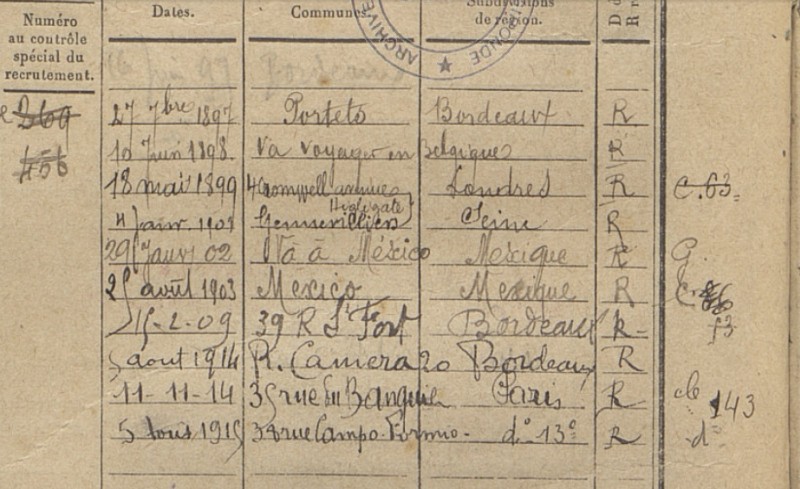 Numéro
au contrôle
spécial du
recrutement.
Dates.
Communes
Subdivisions
de région.
ARCHIVE
269
456
27 7bre 1897 Portets Bordeaux R
10 Juin 1898 Va voyager en Belgique R
18 mai 1899 4 Cromwell avenue Londres R C. 63.
Highgate
4 Janv. 1901 Gennevilliers Seine R
29 Janv 02 Va à México Mexique R G.
25 août 1903 Mexico Mexique R C.
15-2-09 39 R St Fort Bordeaux R 53
5 aout 1914 R. Camera 20 Bordeaux R
11-11-14 35 rue du Banquier Paris R cle 143
5 1915 34 rue Campo-Formio- do 13e R d